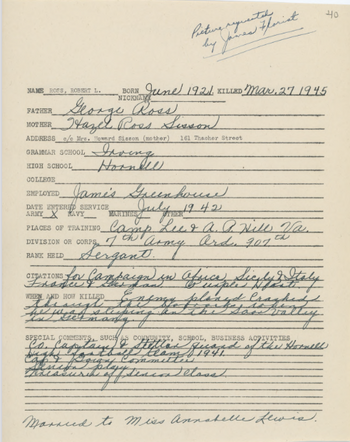 40
Picture requested
by James Florist
NAME ROSS, ROBERT L. BORN June 1921 KILLED Mar. 27 1945
NICKNAME
FATHER George Ross
MOTHER Hazel Ross Sisson
ADDRESS c/o Mrs. Howard Sisson (mother) 161 Thacher Street
GRAMMAR SCHOOL Irving
HIGH SCHOOL Hornell
COLLEGE
EMPLOYED James Greenhouse
DATE ENTERED SERVICE July 1942
ARMY X NAVY MARINES OTHER
PLACES OF TRAINING Camp Lee & A. P. Hill Va.
DIVISION OR CORPS 7th Army Ors. 907th
RANK HELD Sergant.
CITATIONS for Campaign in Africa Sicily & Italy
France & German Purple Heart.
WHEN AND HOW KILLED Enemy plane crashed
through to
he was sleeping in the Saar Valley
in Germany
SPECIAL COMMENTS, SUCH AS COMMUNITY, SCHOOL, BUSINESS ACTIVITIES
Co. Captain & Stellar guard of the Hornell
high football team 1941
Cap & Gown Committee
Senior play
Treasurer of Senior Class
Married to Miss Annabelle Lewis.